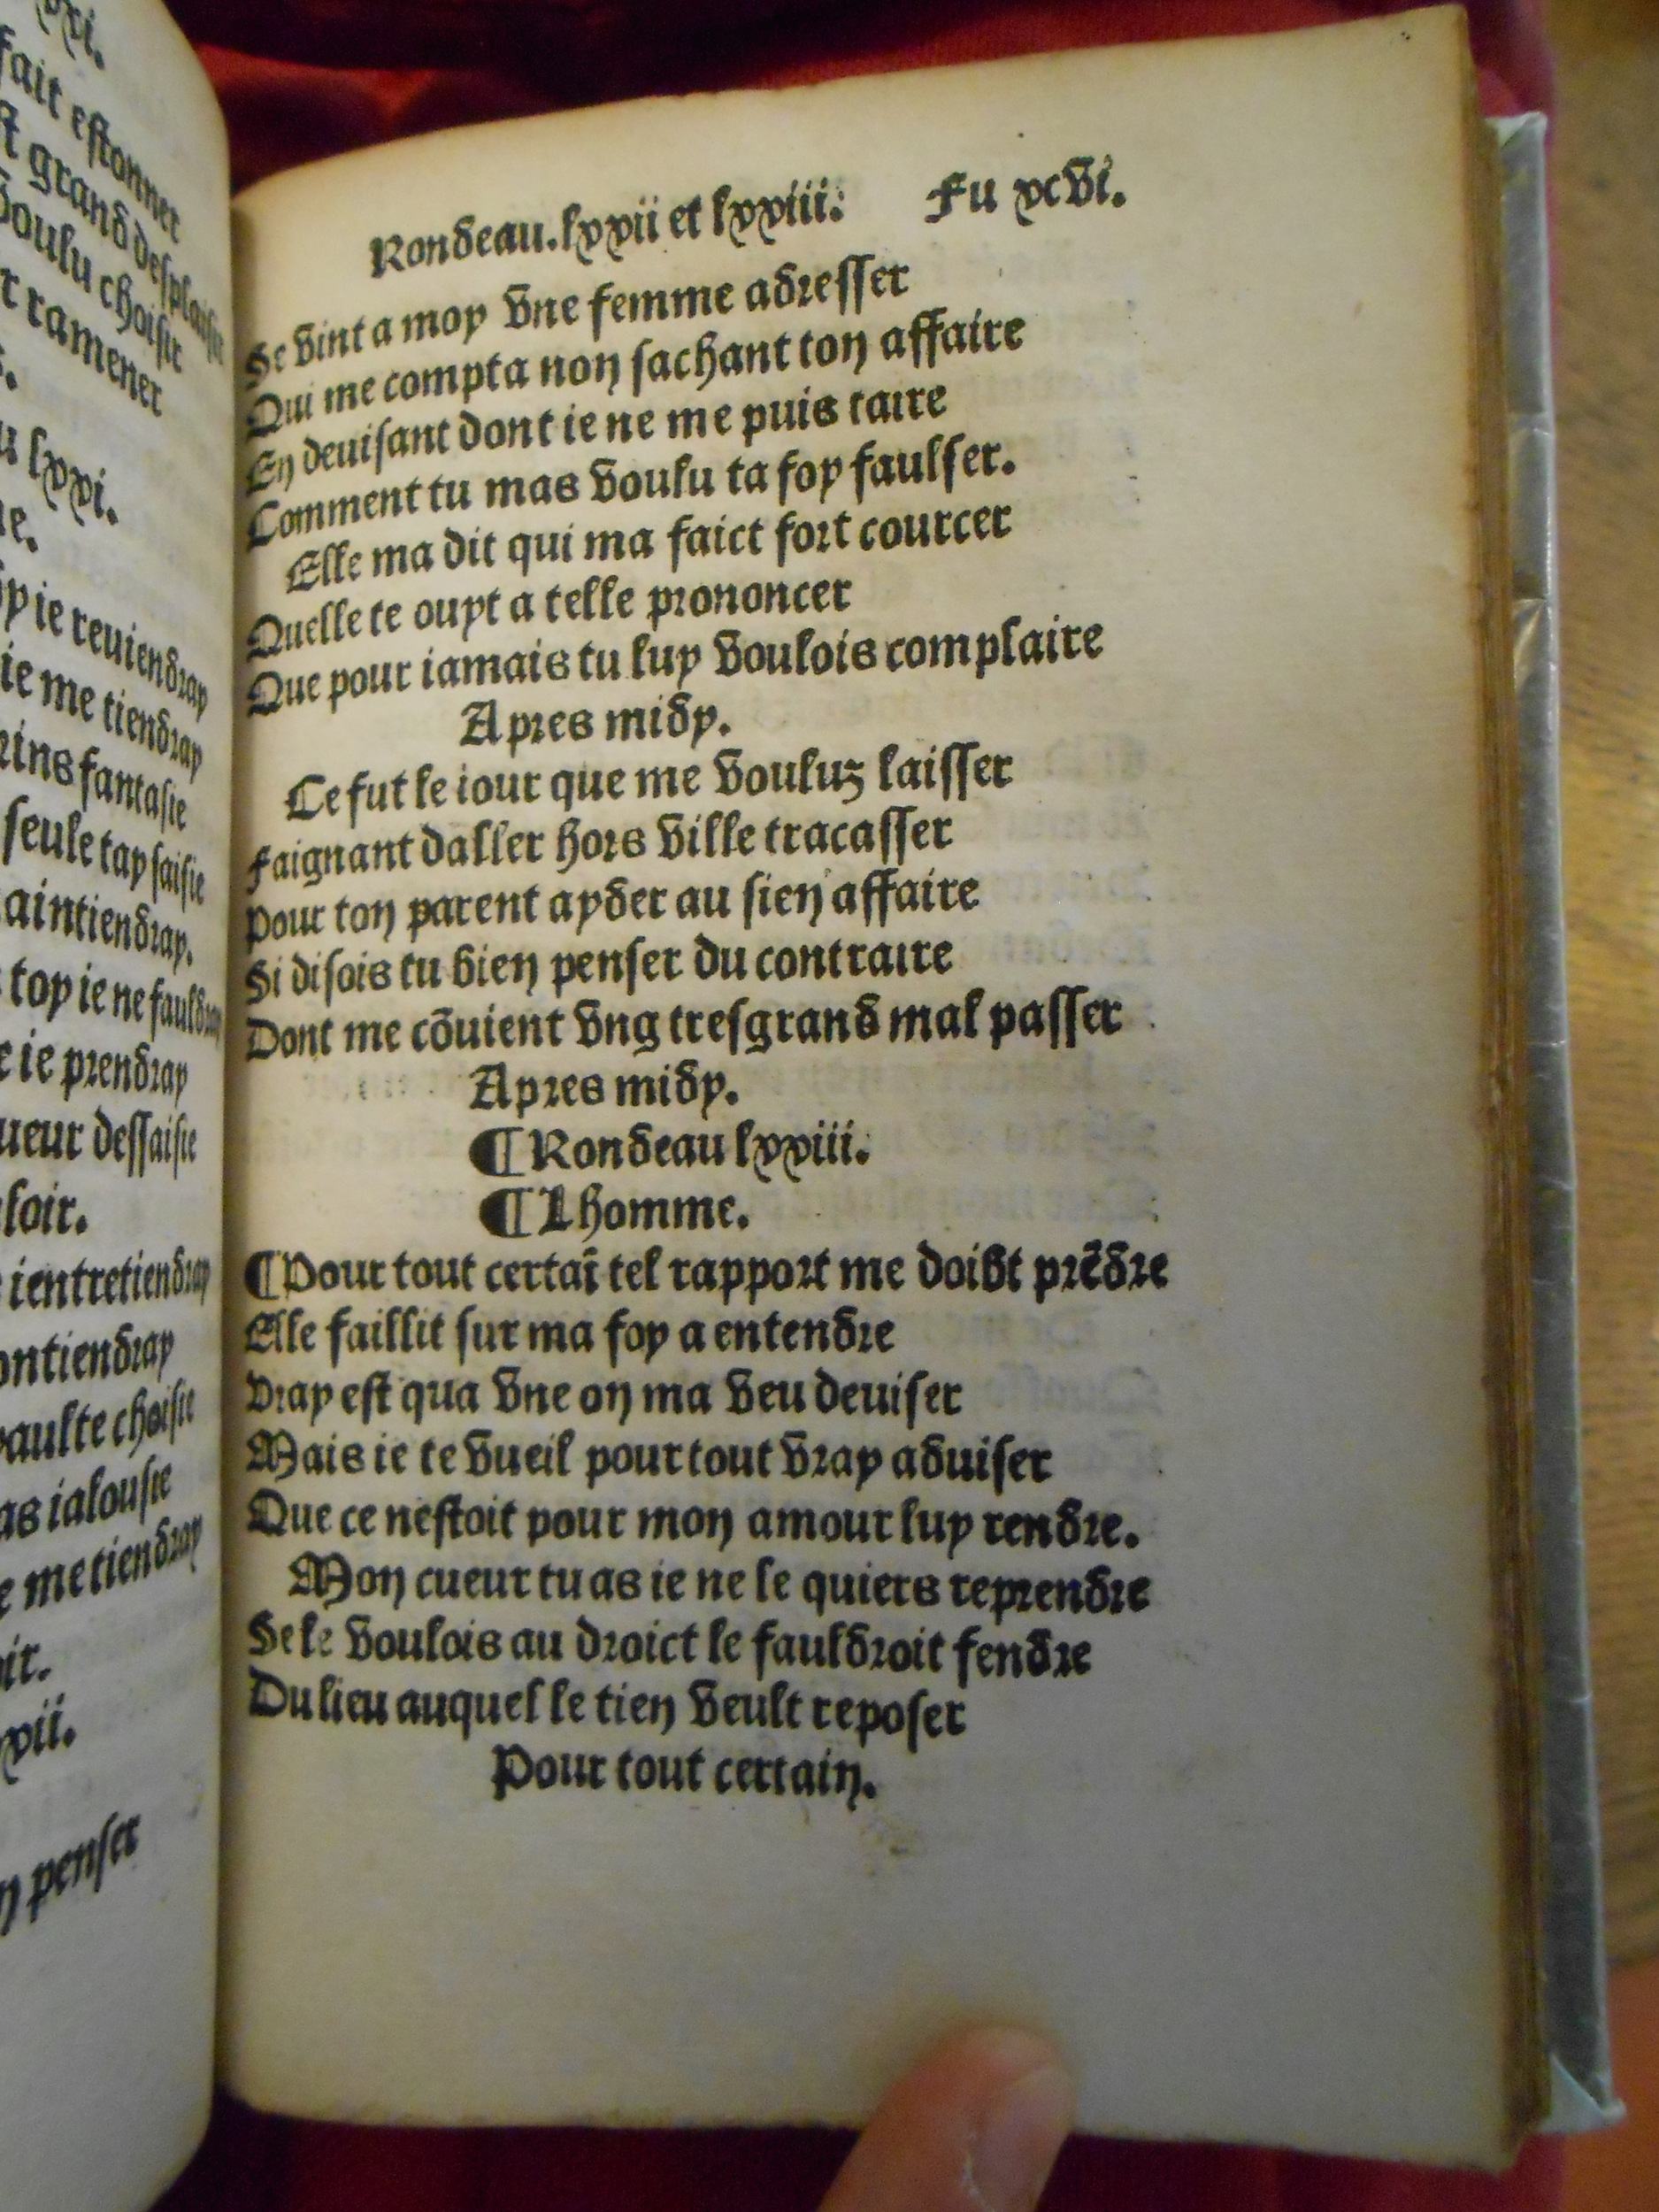 xvi.
fait estonner
st grand desplaisir
voulu choisir
r ramener
lxxi.
ie reuiendray
ie me tiendray
rins fantasie
seule tay saisie
aintiendray.
toy ie ne fauldray
ie prendray
ueur dessaisie
loir.
ientretiendray
ontiendray
aulte choisie
as ialousie
e me tiendray
ir.
xvii.
n penser
Rondeau. lxxii et lxxiii. Fu xcvi.
Se vint a moy vne femme adresser
Qui me compta non sachant ton affaire
En deuisant dont ie ne me puis taire
Comment tu mas voulu ta foy faulser.
Elle ma dit qui ma faict fort courcer
Quelle te ouyt a telle prononcer
Que pour iamais tu luy voulois complaire
Apres midy.
Ce fut le iour que me vouluz laisser
Faignant daller hors ville tracasser
Pour ton parent ayder au sien affaire
Si disois tu bien penser du contraire
Dont me cõuient vng tresgrand mal passer
Apres midy.
¶ Rondeau lxxiii.
¶ Lhomme.
¶ Pour tout certaī tel rapport me doibt prẽdre
Elle faillit sur ma foy a entendre
Vray est qua vne on ma veu deuiser
Mais ie te vueil pour tout vray aduiser
Que ce nestoit pour mon amour luy rendre.
Mon cueur tu as ie ne le quiers reprendre
Se le voulois au droict le fauldroit fendre
Du lieu auquel le tien veult reposer
Pour tout certain.